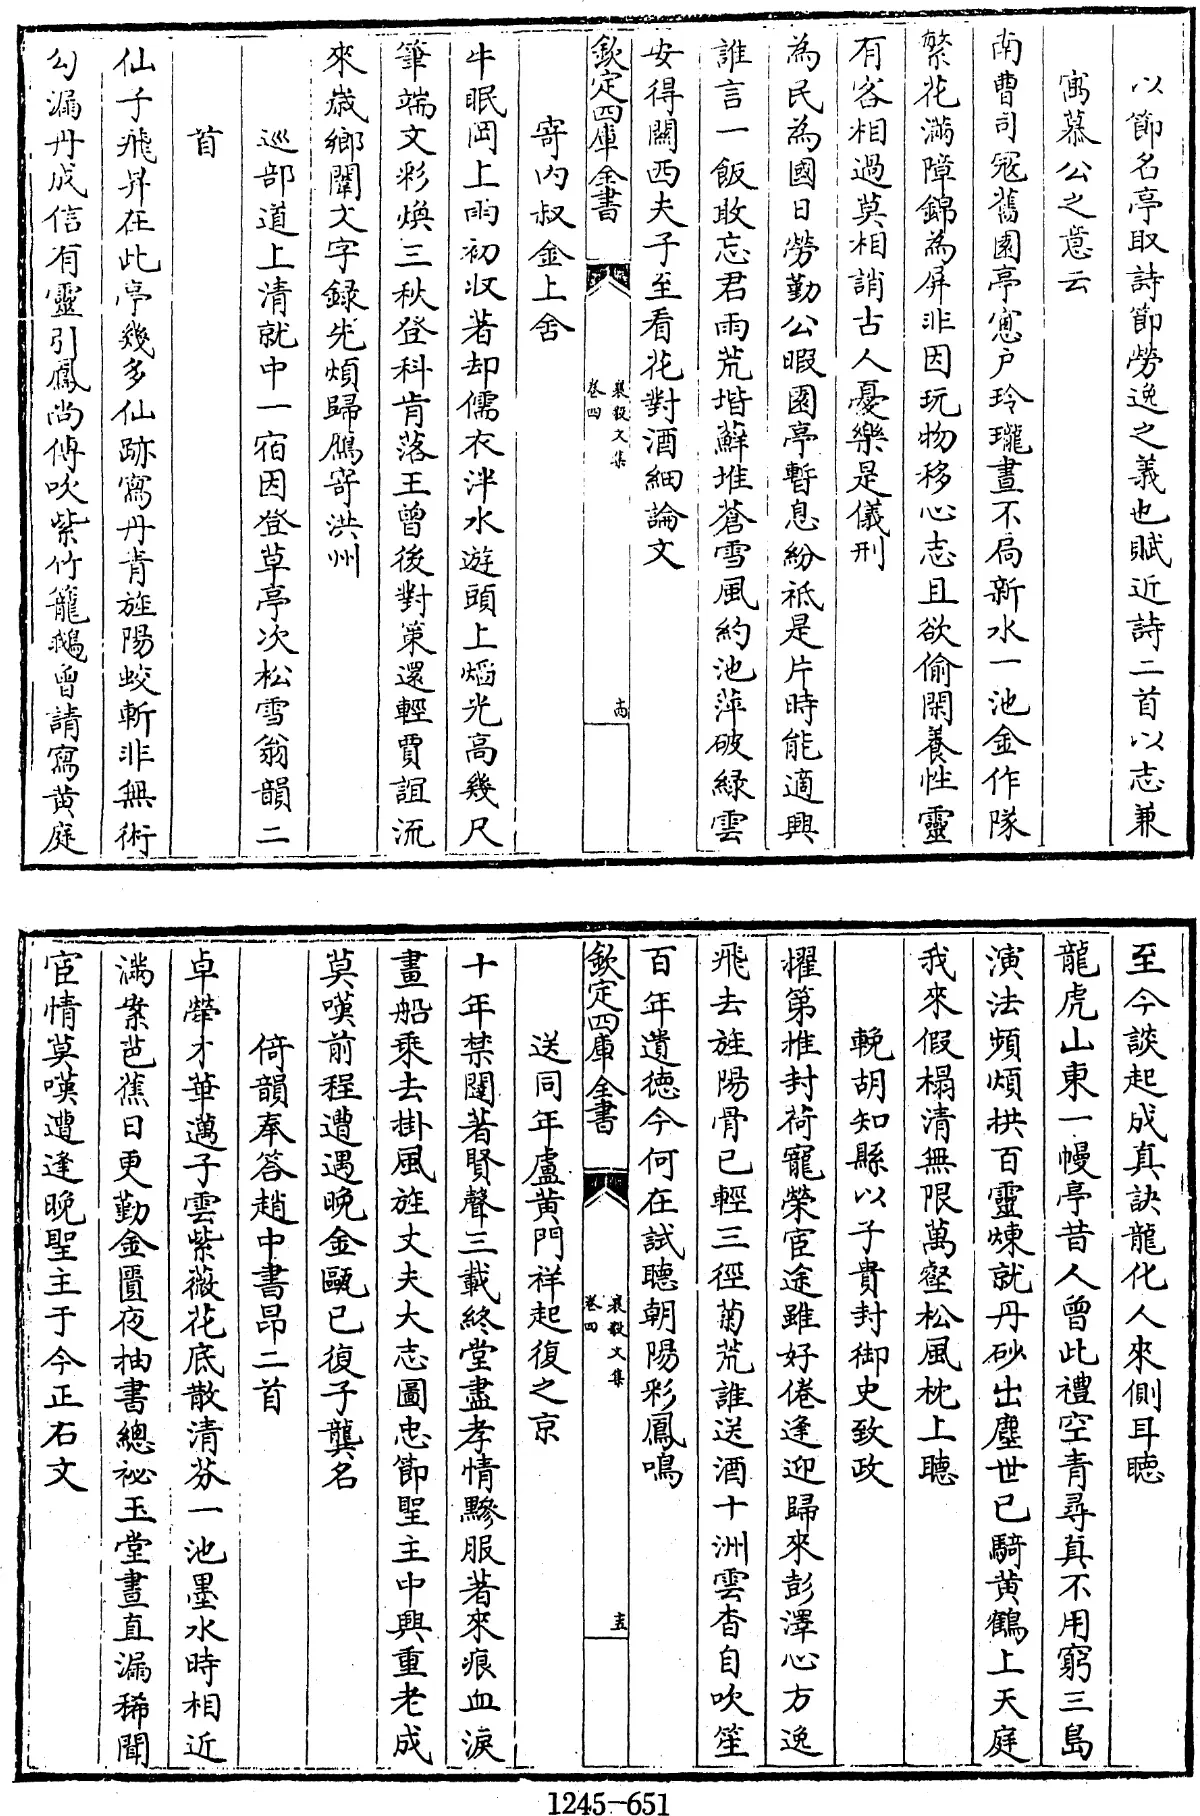 以節名亭取詩節勞逸之義也賦近詩二首以志兼
寓慕公之意云
南曹司冦舊園亭窓户玲瓏晝不扃新水一池金作隊
繁花滿障錦為屏非因玩物移心志且欲偷閑養性靈
有客相過莫相誚古人憂樂是儀刑
為民為國日勞勤公暇園亭暫息紛祇是片時能適興
誰言一飯敢忘君雨荒堦蘚堆蒼雪風約池萍破緑雲
安得關西夫子至看花對酒細論文
欽定四庫全書
襄毅文集
卷四
十四
寄内叔金上舍
牛眠岡上雨初收著却儒衣泮水遊頭上熖光高幾尺
筆端文彩煥三秋登科肯落王曾後對策還輕賈誼流
來嵗鄉闈文字録先煩歸鴈寄洪州
巡部道上清就中一宿因登草亭次松雪翁韻二
首
仙子飛昇在此亭幾多仙跡寫丹青旌陽蛟斬非無術
勾漏丹成信有靈引鳳尚傳吹紫竹籠鵝曾請寫黄庭
至今談起成真訣龍化人來側耳聽
龍虎山東一幔亭昔人曾此禮空青尋真不用窮三島
演法頻煩拱百靈煉就丹砂出塵世已騎黄鶴上天庭
我來假榻清無限萬壑松風枕上聽
輓胡知縣以子貴封御史致政
擢第推封荷寵榮宦途雖好倦逢迎歸來彭澤心方逸
飛去旌陽骨已輕三徑菊荒誰送酒十洲雲杳自吹笙
百年遺德今何在試聽朝陽彩鳳鳴
欽定四庫全書
襄毅文集
卷四
十五
送同年盧黄門祥起復之京
十年禁闥著賢聲三載終堂盡孝情黲服著來痕血淚
畫船乘去掛風旌丈夫大志圖忠節聖主中興重老成
莫嘆前程遭遇晚金甌已復子龔名
倚韻奉答趙中書昂二首
卓犖才華邁子雲紫薇花底散清芬一池墨水時相近
滿案芭蕉日更勤金匱夜抽書總祕玉堂晝直漏稀聞
宦情莫嘆遭逢晚聖主于今正右文
1245-651